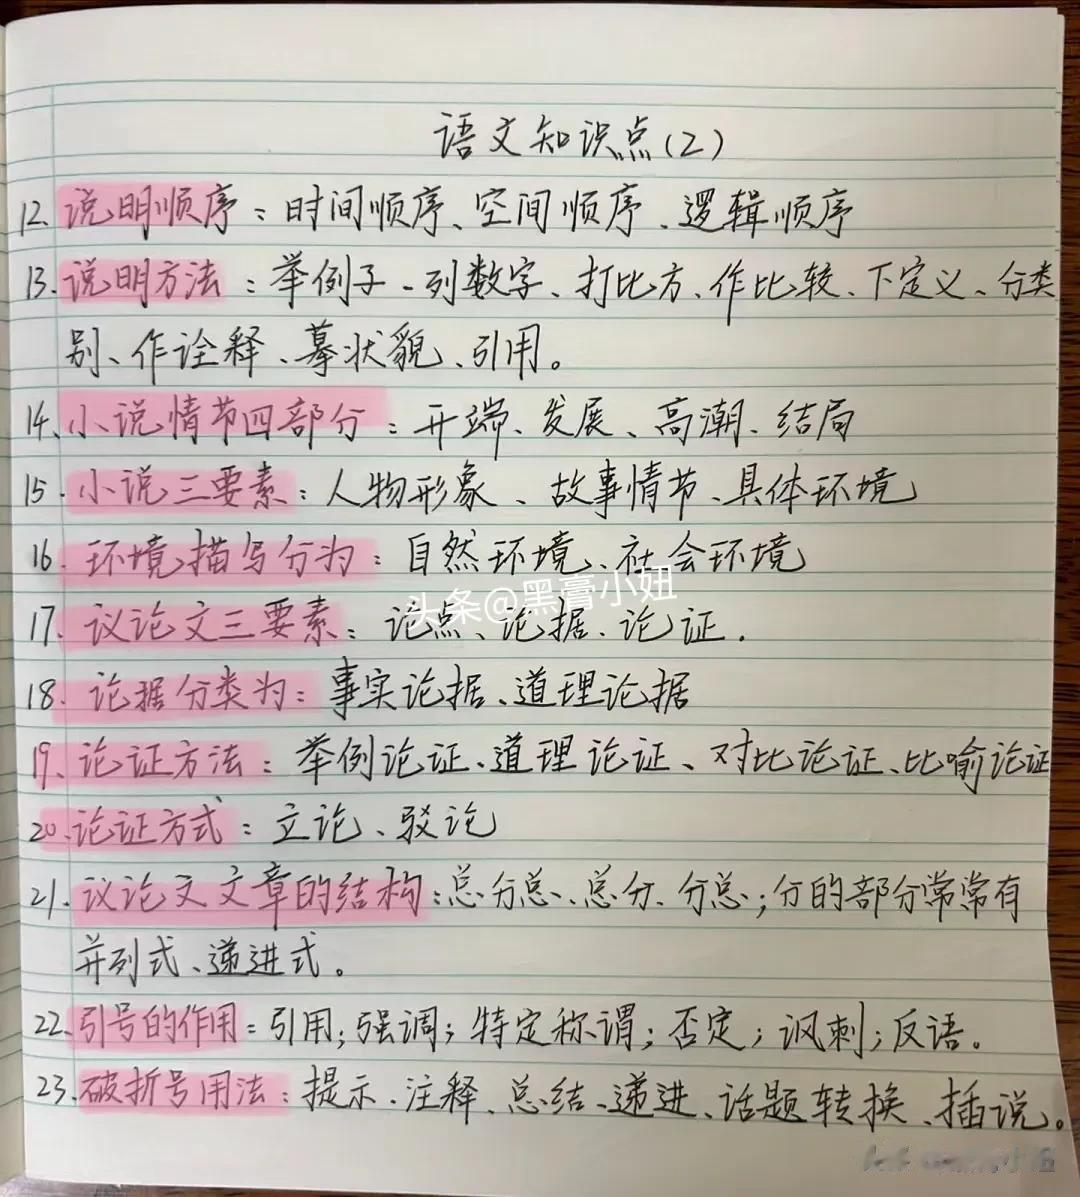 语文知识点(2)
12.说明顺序:时间顺序、空间顺序、逻辑顺序
13.说明方法:举例子、列数字、打比方、作比较、下定义、分类
别、作诠释、摹状貌、引用。
14、小说情节四部分:开端、发展、高潮、结局
15.小说三要素:人物形象、故事情节、具体环境
16.环境描写分为:自然环境、社会环境
头条@黑膏小妞
17.议论文三要素:论点、论据、论证.
18.论据分类为:事实论据、道理论据
19、论证方法:举例论证、道理论证、对比论证、比喻论证
20.论证方式:立论、驳论
21.议论文文章的结构:总分总、总分、分总;分的部分常常有
并列式、递进式。
22、引号的作用:引用;强调;特定称谓;否定;讽刺;反语。
23.破折号用法:提示、注释、总结、递进、话题转换、插说。